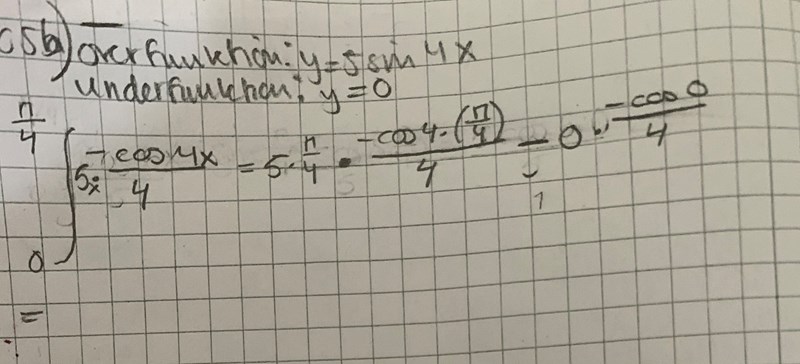 c5b) Överfunktion: y=5 sin 4x
Underfunktion: y=0
π/4 ∫ 0 5x · -cos 4x / 4 = 5 · π/4 · -cos 4 · (π/4) / 4 - 0 · -cos 0 / 4
=